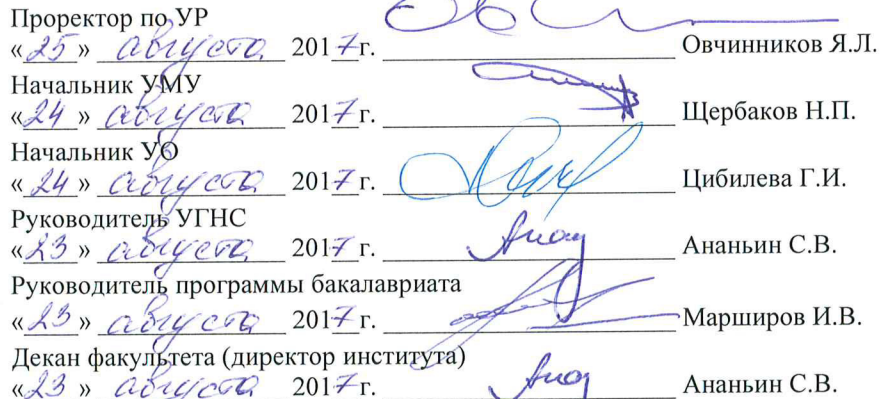 Проректор по УР
«25» августа 2017г. Овчинников Я.Л.
Начальник УМУ
«24» августа 2017г. Щербаков Н.П.
Начальник УО
«24» августа 2017г. Цибилева Г.И.
Руководитель УГНС
«23» августа 2017г. Ананьин С.В.
Руководитель программы бакалавриата
«23» августа 2017г. Марширов И.В.
Декан факультета (директор института)
«23» августа 2017г. Ананьин С.В.